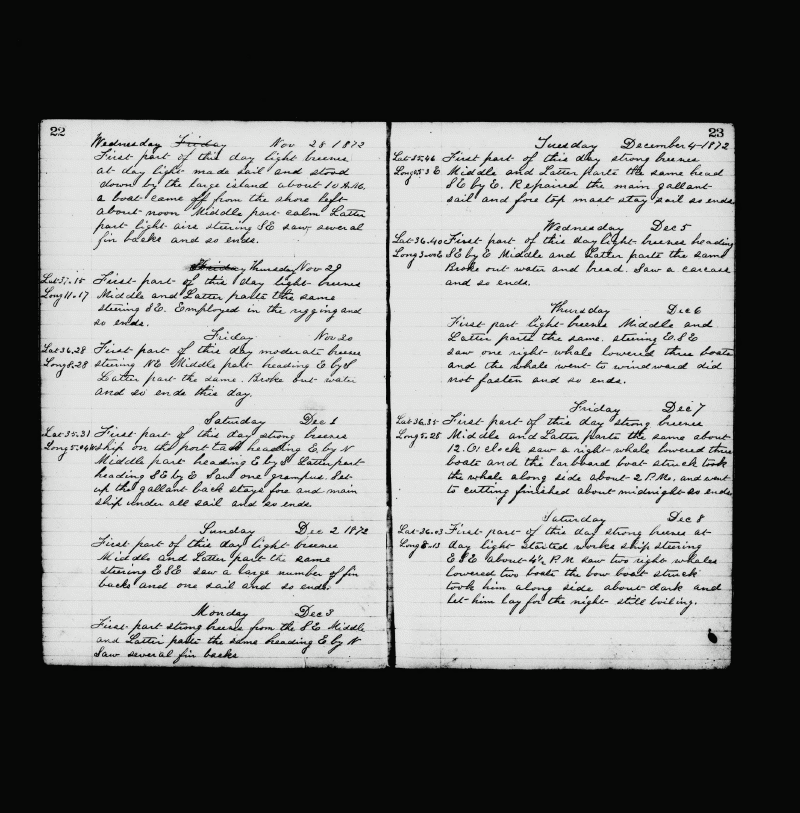 22
Wednesday Friday Nov 28 1872
First part of this day light breeses
at day light made sail and stood
down by the large island about 10 A.M.
a boat came off from the shore left
about noon Middle part calm Latter
part light airs steering SE saw several
fin backs and so ends.
Thursday Nov 29
Lat 37.15 First part of this day light breeses
Long 11.17 Middle and Latter parts the same
steering SE. Employed in the rigging and
so ends.
Friday Nov 30
Lat 36.28 First part of this day moderate breeses
Long 8.28 steering NE Middle part heading E by S
Latter part the same. Broke out water
and so ends this day.
Saturday Dec 1
Lat 35.31 First part of this day strong breeses
Long 5.04W ship on the port tack heading E by N
Middle part heading E by S Latter part
heading SE by E Saw one grampus. Set
up the gallant back stays fore and main
ship under all sail and so ends
Sunday Dec 2 1872
First part of this day light breeses
Middle and Latter part the same
steering ESE saw a large number of fin
backs and one sail and so ends.
Monday Dec 3
First part strong breeses from the SE Middle
and Latter parts the same heading E by N
Saw several fin backs
23
Tuesday December 4 1872
Lat 35.46 First part of this day strong breeses
Long 0.53 E Middle and Latter parts the same head
SE by E. Repaired the main gallant
sail and fore top mast stay sail so ends
Wednesday Dec 5
Lat 36.40 First part of this day light breeses heading
Long E SE by E Middle and Latter parts the same
Broke out water and bread. Saw a carcase
and so ends.
Thursday Dec 6
First part light breeses Middle and
Latter parts the same. steering ESE
saw one right whale lowered three boats
and the whale went to windward did
not fasten and so ends.
Friday Dec 7
Lat 36.35 First part of this day strong breeses
Long 5.25 Middle and Latter parts the same about
12 O'clock saw a right whale lowered three
boats and the larboard boat struck took
the whale along side about 2 P.M. and went
to cutting finished about midnight so ends
Saturday Dec 8
Lat 36.03 First part of this day strong breeses at
Long 8.13 day light started works ship steering
ESE about 4½ P.M saw two right whales
lowered two boats the bow boat struck
took him along side about dark and
let him lay for the night still boiling.